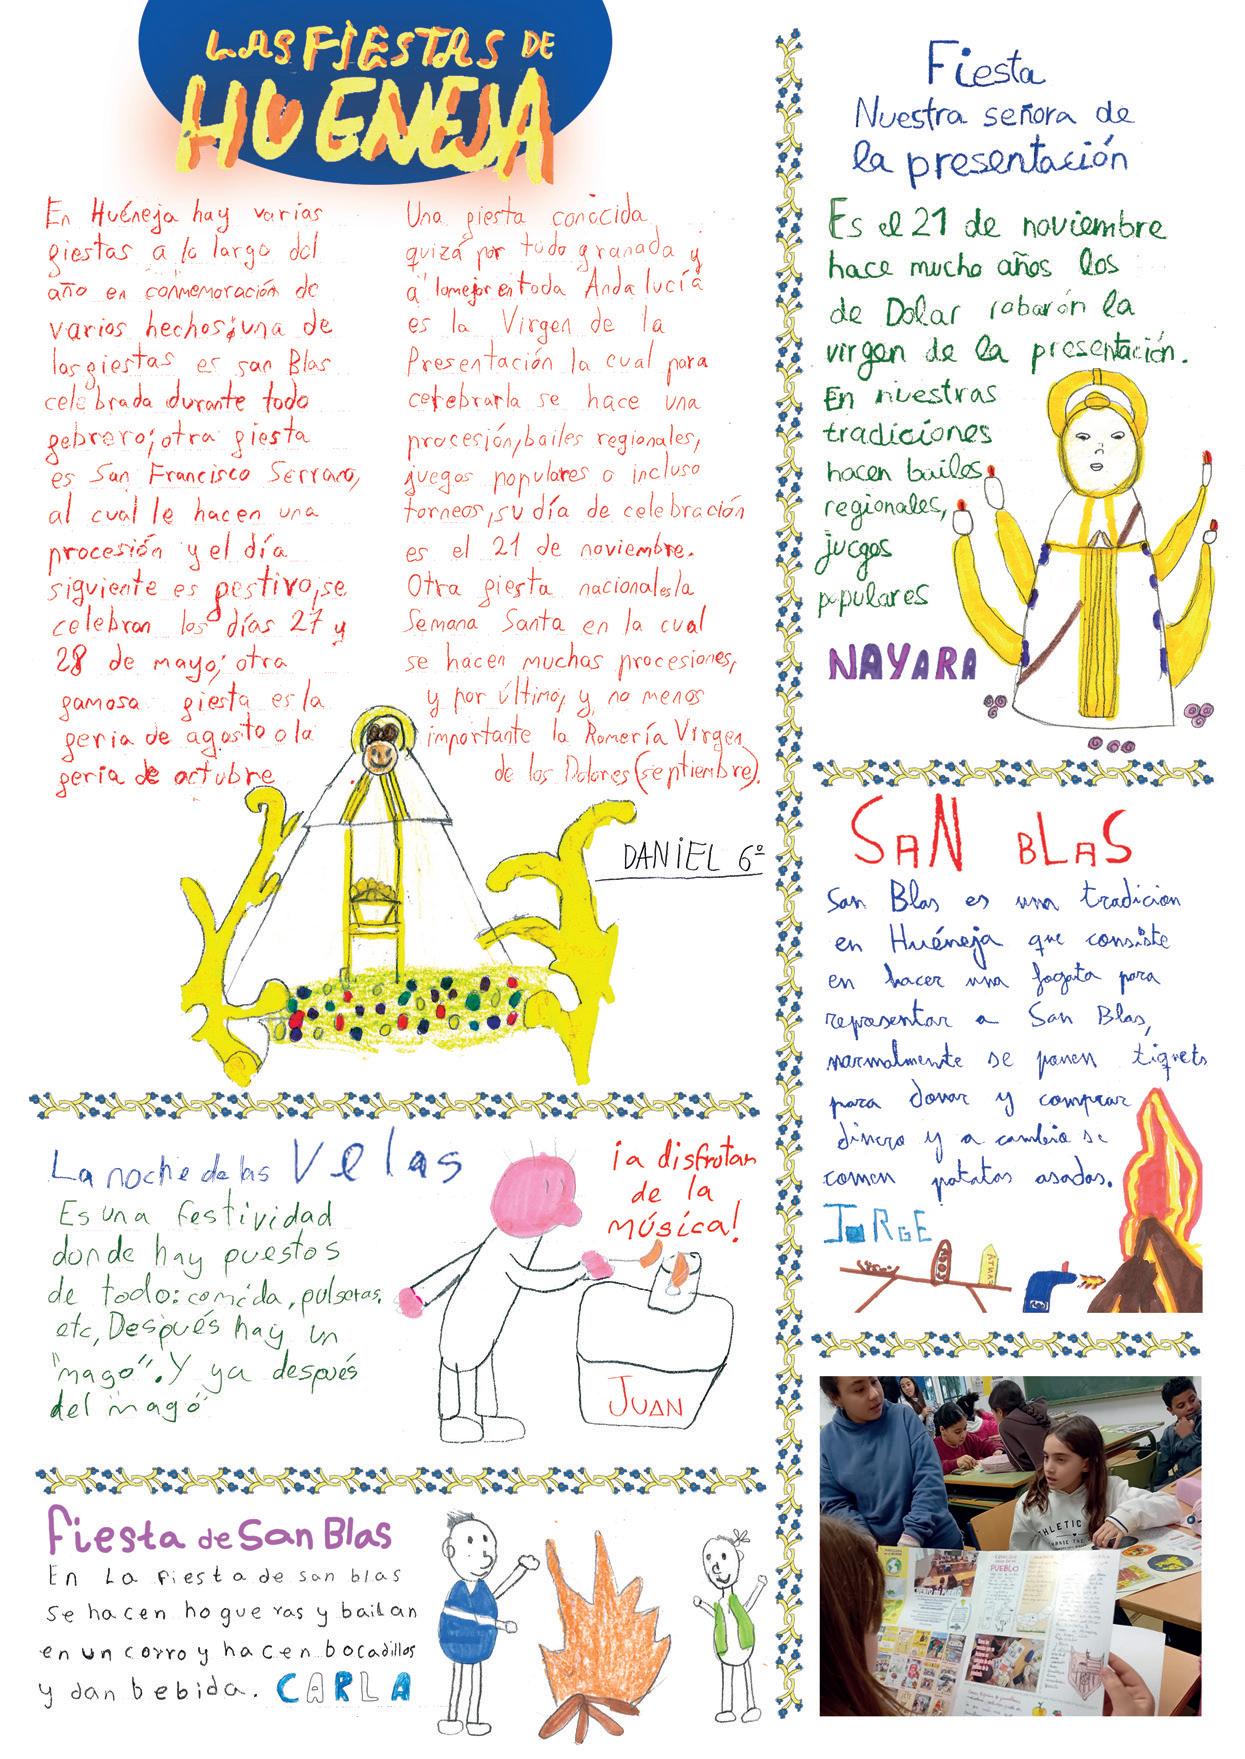 LAS FIESTAS DE
HUENEJA
En Huéneja hay varias
giestas a lo largo del
año en conmemoración de
varios hechos, una de
las giestas es san Blas
celebrada durante todo
gebrero; otra giesta
es San Francisco Serrano,
al cual le hacen una
procesión y el día
siguiente es gestivo, se
celebran los días 27 y
28 de mayo; otra
gamosa giesta es la
geria de agosto o la
geria de octubre
Una giesta conocida
quizá por todo granada y
a lomejor en toda Andalucía
es la Virgen de la
Presentación la cual para
celebrarla se hace una
procesión, bailes regionales,
juegos populares o incluso
torneos, su día de celebración
es el 21 de noviembre.
Otra giesta nacional es la
Semana Santa en la cual
se hacen muchas procesiones,
y por último, y no menos
importante la Romería Virgen
de los Dolores (septiembre).
DANIEL 6º
La noche de las velas
Es una festividad
donde hay puestos
de todo: comida, pulseras,
etc, Después hay un
"mago". Y ya después
del mago
¡a disfrutar
de la
música!
JUAN
Fiesta de San Blas
En La fiesta de san blas
se hacen hogueras y bailan
en un corro y hacen bocadillos
y dan bebida. CARLA
Fiesta
Nuestra señora de
la presentación
Es el 21 de noviembre
hace mucho años los
de Dolar robarón la
virgen de la presentación.
En nuestras
tradiciones
hacen bailes
regionales,
juegos
populares
NAYARA
SAN BLAS
San Blas es una tradicion
en Huéneja que consiste
en hacer una fogata para
representar a San Blas,
normalmente se ponen tiqrets
para donar y comprar
dinero y a cambio se
comen patatas asadas.
JORGE
COCA
FANTA
ATHLETIC
PUEBLO